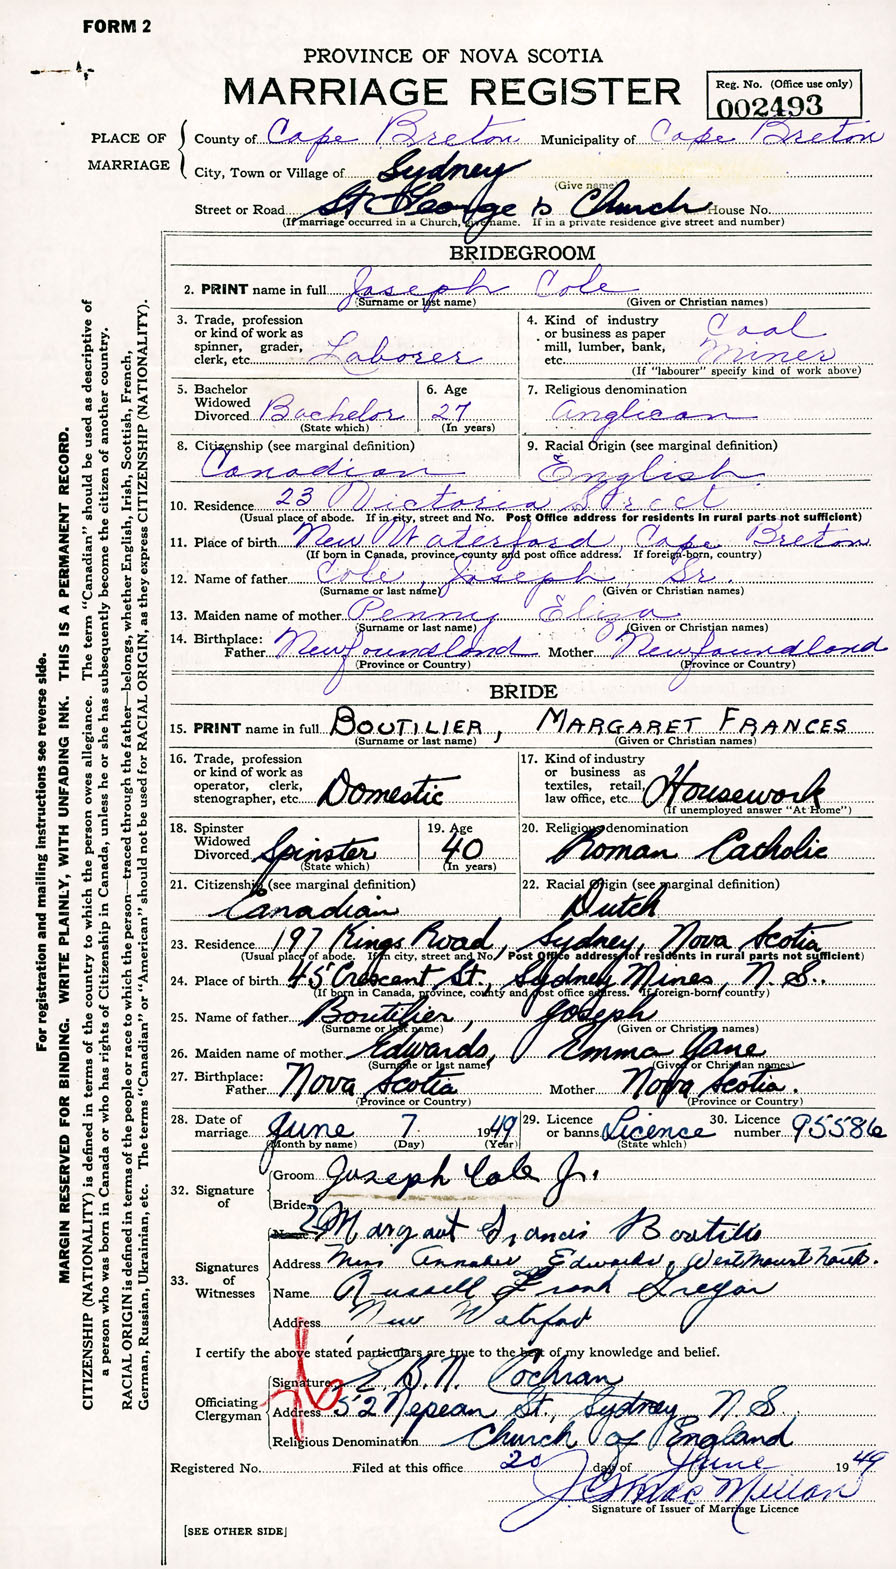 FORM 2
PROVINCE OF NOVA SCOTIA
MARRIAGE REGISTER
Reg. No. (Office use only)
002493
PLACE OF MARRIAGE
County of Cape Breton Municipality of Cape Breton
City, Town or Village of Sydney
(Give name)
Street or Road St George's Church House No.
(If marriage occurred in a Church, give name. If in a private residence give street and number)
BRIDEGROOM
2. PRINT name in full Joseph Cole
(Surname or last name) (Given or Christian names)
3. Trade, profession or kind of work as spinner, grader, clerk, etc. Laborer
4. Kind of industry or business as paper mill, lumber, bank, etc. Coal Miner
(If "labourer" specify kind of work above)
5. Bachelor Widowed Divorced Bachelor
(State which)
6. Age 27
(In years)
7. Religious denomination
Anglican
8. Citizenship (see marginal definition)
Canadian
9. Racial Origin (see marginal definition)
English
10. Residence 23 Victoria Street
(Usual place of abode. If in city, street and No. Post Office address for residents in rural parts not sufficient)
11. Place of birth New Waterford, Cape Breton
(If born in Canada, province, county and post office address. If foreign-born, country)
12. Name of father Cole, Joseph, Sr.
(Surname or last name) (Given or Christian names)
13. Maiden name of mother Penny Eliza
(Surname or last name) (Given or Christian names)
14. Birthplace:
Father Newfoundland Mother Newfoundland
(Province or Country) (Province or Country)
BRIDE
15. PRINT name in full BOUTILIER, MARGARET FRANCES
(Surname or last name) (Given or Christian names)
16. Trade, profession or kind of work as operator, clerk, stenographer, etc. Domestic
17. Kind of industry or business as textiles, retail, law office, etc. Housework
(If unemployed answer "At Home")
18. Spinster Widowed Divorced Spinster
(State which)
19. Age
40
(In years)
20. Religious denomination
Roman Catholic
21. Citizenship (see marginal definition)
Canadian
22. Racial Origin (see marginal definition)
Dutch
23. Residence 197 Kings Road, Sydney, Nova Scotia
(Usual place of abode. If in city, street and No. Post Office address for residents in rural parts not sufficient)
24. Place of birth 45 Crescent St., Sydney Mines, N.S.
(If born in Canada, province, county and post office address. If foreign-born, country)
25. Name of father Boutilier, Joseph
(Surname or last name) (Given or Christian names)
26. Maiden name of mother Edwards, Emma Jane
(Surname or last name) (Given or Christian names)
27. Birthplace:
Father Nova Scotia Mother Nova Scotia.
(Province or Country) (Province or Country)
28. Date of marriage June 7 1949
(Month by name) (Day) (Year)
29. Licence or banns Licence
(State which)
30. Licence number 95586
32. Signature of
Groom Joseph Cole Jr.
Bride
Margaret Francis Boutilier
33. Signatures of Witnesses
Name
Address Miss Annabel Edwards, Westmount
Name Russell Frank
Address New Waterford
I certify the above stated particulars are true to the best of my knowledge and belief.
Officiating Clergyman
Signature E. B. N. Cochran
Address 52 Nepean St., Sydney, N.S.
Religious Denomination Church of England
Registered No. Filed at this office 20 day of June 1949
J. MacMillan
Signature of Issuer of Marriage Licence
[SEE OTHER SIDE]
For registration and mailing instructions see reverse side.
MARGIN RESERVED FOR BINDING. WRITE PLAINLY, WITH UNFADING INK. THIS IS A PERMANENT RECORD.
CITIZENSHIP (NATIONALITY) is defined in terms of the country to which the person owes allegiance. The term "Canadian" should be used as descriptive of
a person who was born in Canada or who has rights of Citizenship in Canada, unless he or she has subsequently become the citizen of another country.
RACIAL ORIGIN is defined in terms of the people or race to which the person—traced through the father—belongs, whether English, Irish, Scottish, French,
German, Russian, Ukrainian, etc. The terms "Canadian" or "American" should not be used for RACIAL ORIGIN, as they express CITIZENSHIP (NATIONALITY).